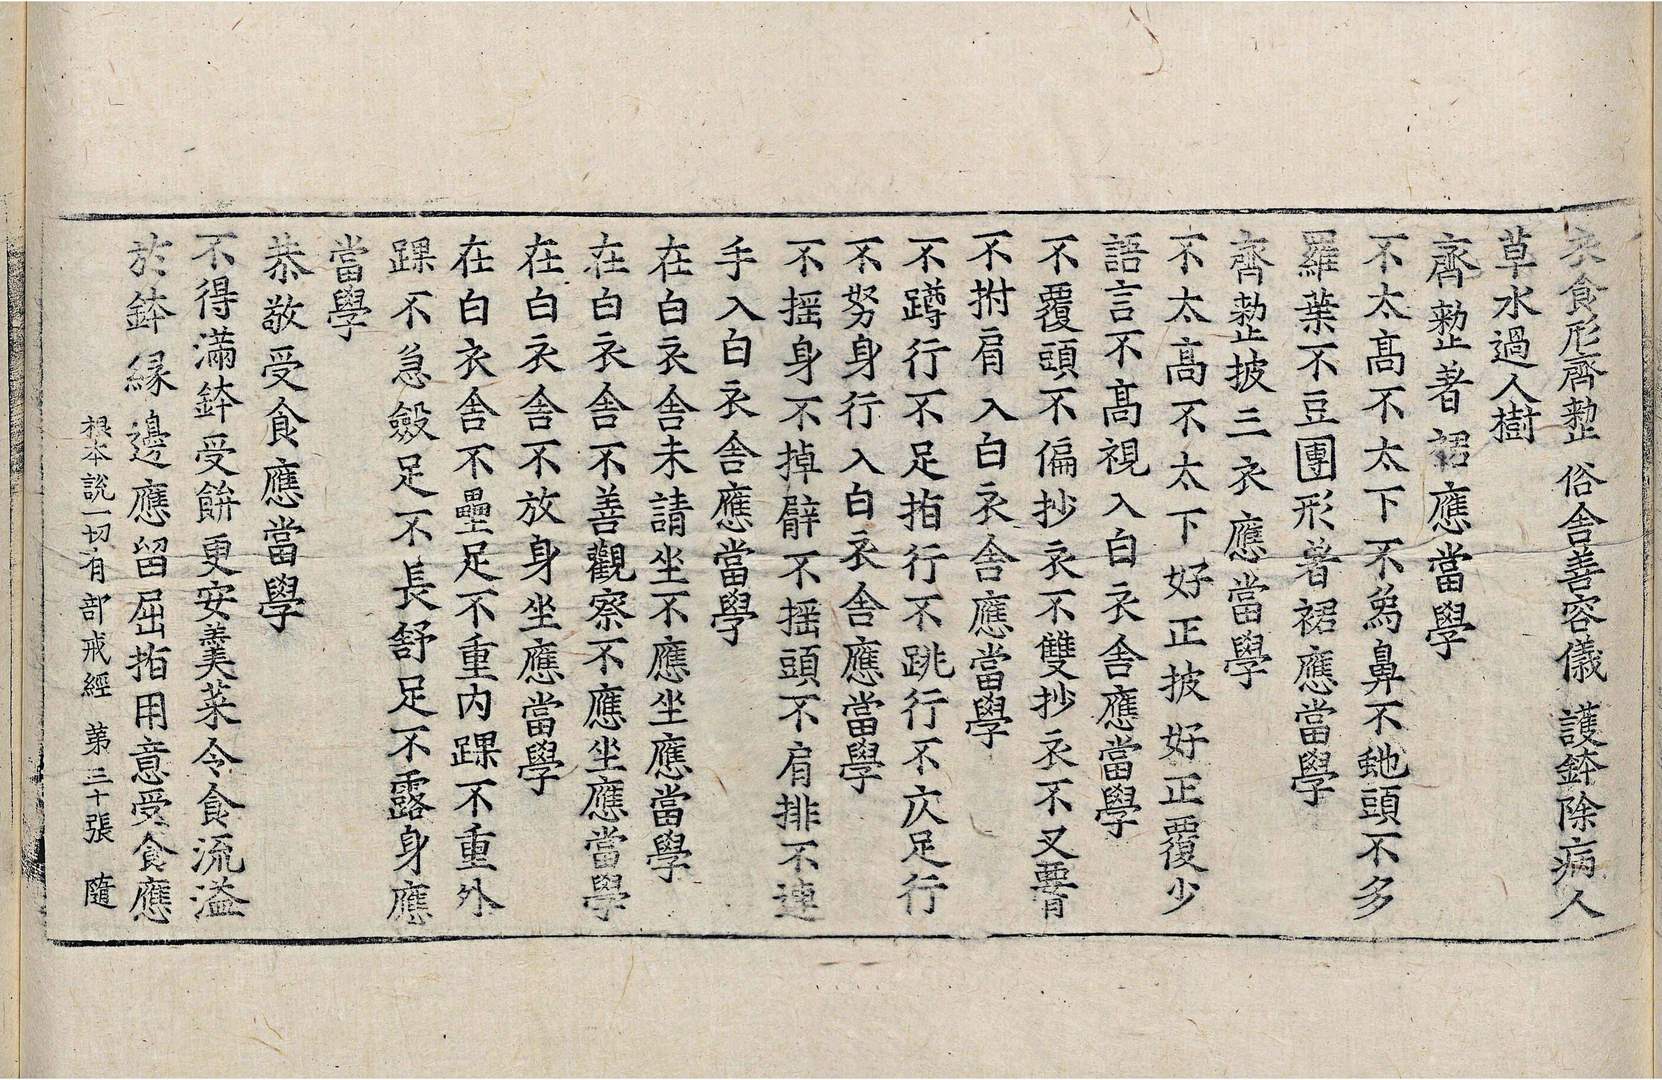 衣食形齊整　俗舍善容儀　護鉢除病人
草水過人樹
齊整著裙應當學
不太高不太下不爲鼻不虵頭不多
羅葉不豆團形著裙應當學
齊整披三衣應當學
不太高不太下好正披好正覆少
語言不高視入白衣舍應當學
不覆頭不偏抄衣不雙抄衣不叉腰
不拊肩入白衣舍應當學
不蹲行不足指行不跳行不仄足行
不努身行入白衣舍應當學
不揺身不掉臂不揺頭不肩排不連
手入白衣舍應當學
在白衣舍未請坐不應坐應當學
在白衣舍不善觀察不應坐應當學
在白衣舍不放身坐應當學
在白衣舍不壘足不重内踝不重外
踝不急斂足不長舒足不露身應
當學
恭敬受食應當學
不得滿鉢受餅更安羹菜令食流溢
於鉢緣邊應留屈指用意受食應
根本說一切有部戒經　第三十張　隨